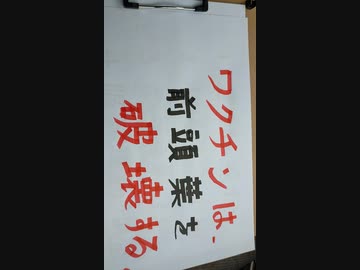 ワクチンは、
前頭葉を
破壊する。